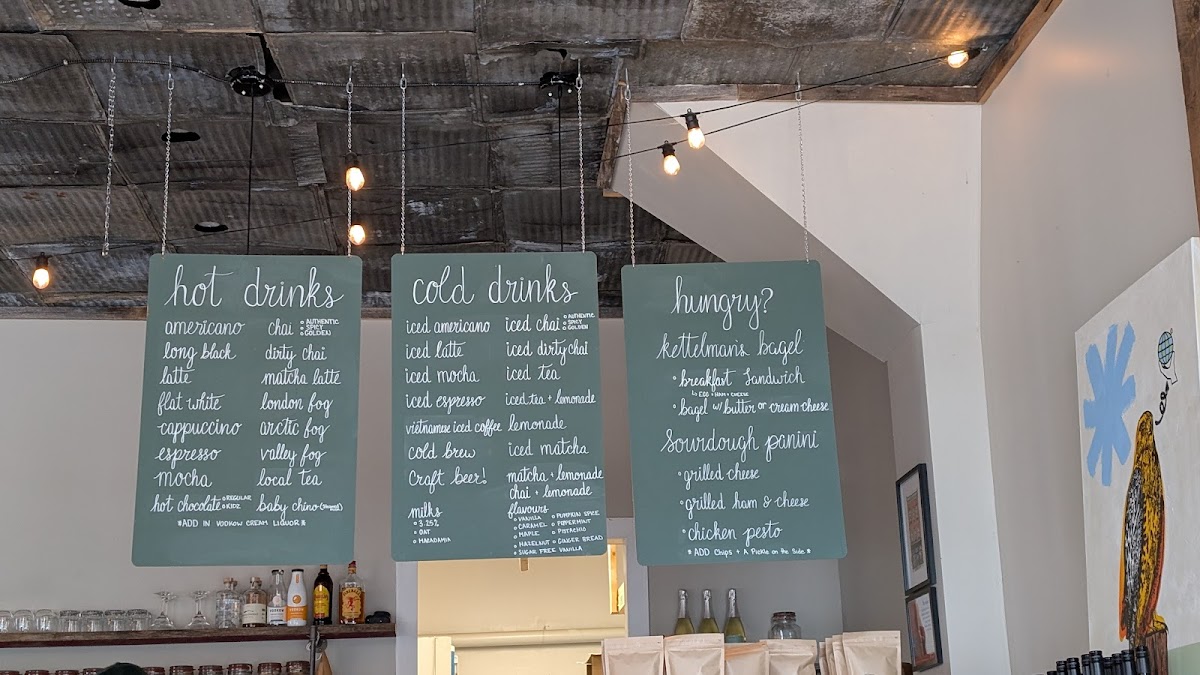 hot drinks
americano
long black
latte
flat white
cappuccino
espresso
mocha
hot chocolate
• REGULAR
• KIDZ
chai
• AUTHENTIC
• SPICY
• GOLDEN
dirty chai
matcha latte
london fog
arctic fog
valley fog
local tea
baby chino
*ADD IN VODKOW CREAM LIQUOR*
cold drinks
iced americano
iced latte
iced mocha
iced espresso
vietnamese iced coffee
cold brew
Craft beer!
milks
• 3.25%
• OAT
• MACADAMIA
iced chai
• AUTHENTIC
• SPICY
• GOLDEN
iced dirty chai
iced tea
iced tea + lemonade
lemonade
iced matcha
matcha + lemonade
chai + lemonade
flavours
• VANILLA
• CARAMEL
• MAPLE
• HAZELNUT
• SUGAR FREE VANILLA
• PUMPKIN SPICE
• PEPPERMINT
• PISTACHIO
• GINGER BREAD
hungry?
kettelman's bagel
• breakfast sandwich
↳ EGG + HAM + CHEESE
• bagel w/ butter or cream cheese
Sourdough panini
• grilled cheese
• grilled ham & cheese
• chicken pesto
* ADD Chips + A Pickle on the Side *